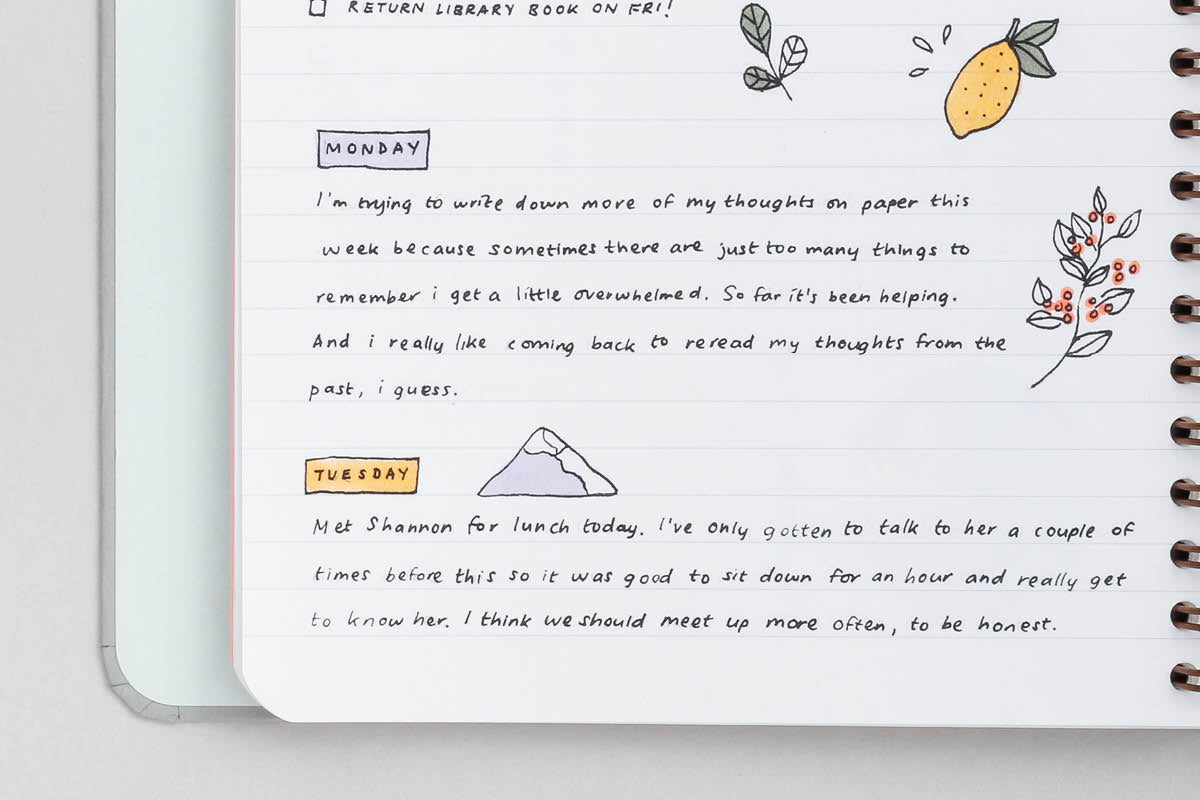 RETURN LIBRARY BOOK ON FRI!
MONDAY
I'm trying to write down more of my thoughts on paper this
week because sometimes there are just too many things to
remember i get a little overwhelmed. So far it's been helping.
And i really like coming back to reread my thoughts from the
past, i guess.
TUESDAY
Met Shannon for lunch today. I've only gotten to talk to her a couple of
times before this so it was good to sit down for an hour and really get
to know her. I think we should meet up more often, to be honest.